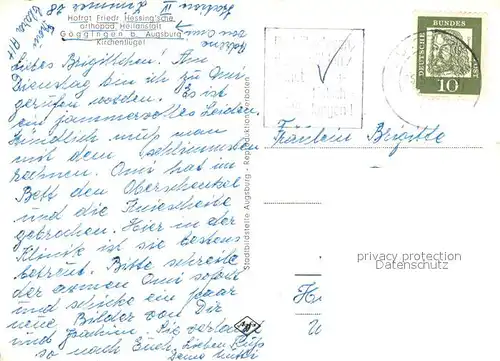 Hofrat Friedr. Hessing'sche
orthopäd. Heilanstalt
Göggingen b. Augsburg
Kirchenflügel
Zimmer 08
Liebes Brigittchen! Am
Dienstag bin ich zu Omi
gerufen worden. Es ist
ein jammervolles Leiden.
Stündlich muß man
mit dem schlimmsten
rechnen. Omi hat im
Bett den Oberschenkel
und die Kniescheibe
gebrochen. Hier in der
Klinik ist sie bestens
betreut. Bitte schreibe
der armen Omi sofort
und schicke ein paar
neue Bilder von Dir
und Joachim. Sie verlangt
so nach Euch. Lieben Kuß
Deine Mutti
Stadtbildstelle Augsburg - Reproduktion verboten
DEUTSCHE BUNDESPOST
10
Fräulein Brigitte
privacy protection
Datenschutz